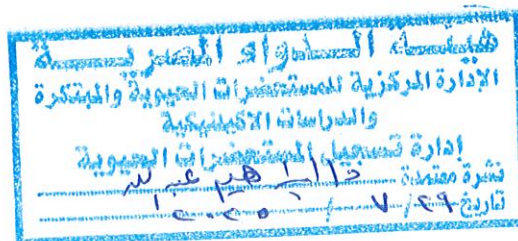 هيئة الدواء المصرية
الإدارة المركزية للمستحضرات الحيوية والمبتكرة
والدراسات الاكلينيكية
إدارة تسجيل المستحضرات الحيوية
نشرة معتمدة د/ ابراهيم عبد الله
تاريخ ٢٩ / ٧ / ٢٠٢٥